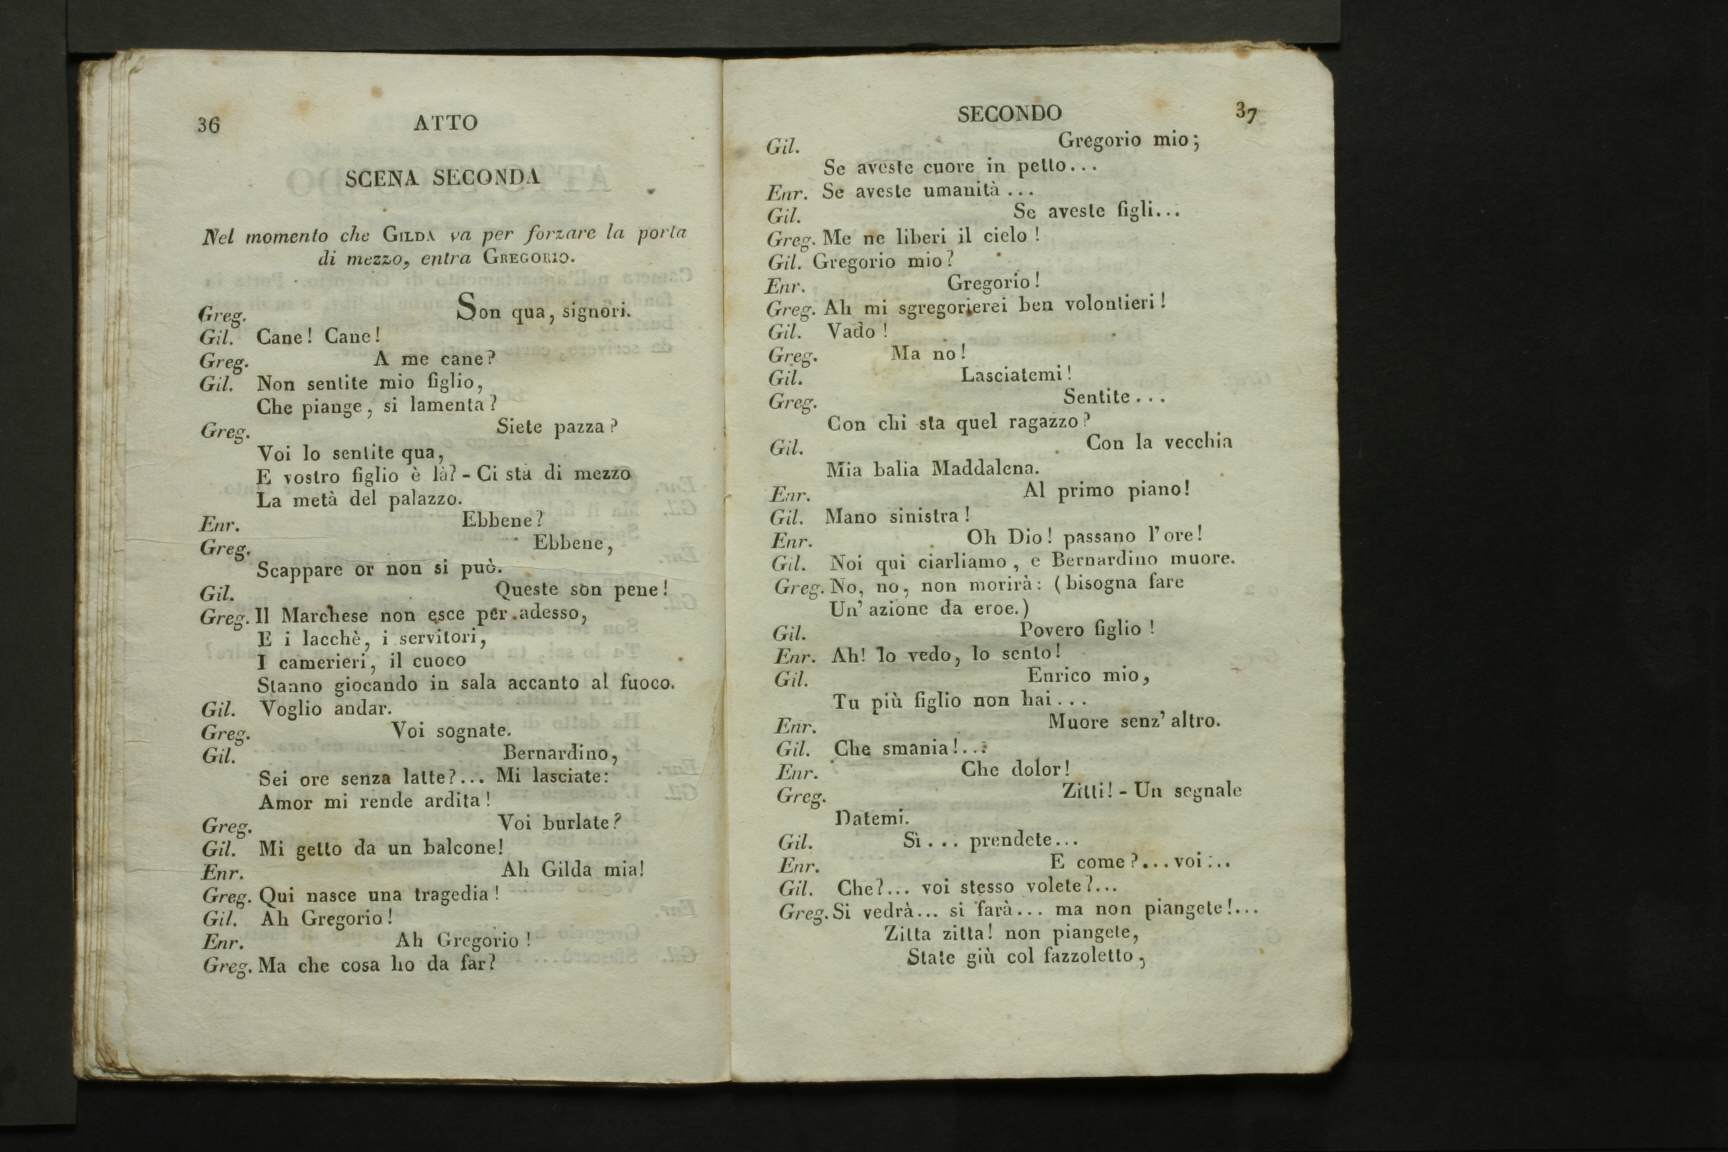 36 ATTO
SCENA SECONDA
Nel momento che GILDA va per forzare la porta
di mezzo, entra GREGORIO.
Greg. Son qua, signori.
Gil. Cane! Cane!
Greg. A me cane?
Gil. Non sentite mio figlio,
Che piange, si lamenta?
Greg. Siete pazza?
Voi lo sentite qua,
E vostro figlio è là? - Ci sta di mezzo
La metà del palazzo.
Enr. Ebbene?
Greg. Ebbene,
Scappare or non si può.
Gil. Queste son pene!
Greg. Il Marchese non esce per adesso,
E i lacchè, i servitori,
I camerieri, il cuoco
Stanno giocando in sala accanto al fuoco.
Gil. Voglio andar.
Greg. Voi sognate.
Gil. Bernardino,
Sei ore senza latte?... Mi lasciate:
Amor mi rende ardita!
Greg. Voi burlate?
Gil. Mi getto da un balcone!
Enr. Ah Gilda mia!
Greg. Qui nasce una tragedia!
Gil. Ah Gregorio!
Enr. Ah Gregorio!
Greg. Ma che cosa ho da far?
SECONDO 37
Gil. Gregorio mio;
Se aveste cuore in petto...
Enr. Se aveste umanità...
Gil. Se aveste figli...
Greg. Me ne liberi il cielo!
Gil. Gregorio mio?
Enr. Gregorio!
Greg. Ah mi sgregorierei ben volontieri!
Gil. Vado!
Greg. Ma no!
Gil. Lasciatemi!
Greg. Sentite...
Con chi sta quel ragazzo?
Gil. Con la vecchia
Mia balia Maddalena.
Enr. Al primo piano!
Gil. Mano sinistra!
Enr. Oh Dio! passano l'ore!
Gil. Noi qui ciarliamo, e Bernardino muore.
Greg. No, no, non morirà: (bisogna fare
Un' azione da eroe.)
Gil. Povero figlio!
Enr. Ah! lo vedo, lo sento!
Gil. Enrico mio,
Tu più figlio non hai...
Enr. Muore senz' altro.
Gil. Che smania!...
Enr. Che dolor!
Greg. Zitti! - Un segnale
Datemi.
Gil. Sì... prendete...
Enr. E come?... voi...
Gil. Che?... voi stesso volete?...
Greg. Si vedrà... si farà... ma non piangete!...
Zitta zitta! non piangete,
State giù col fazzoletto,